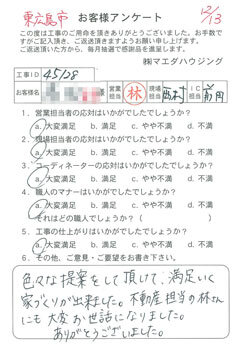 東広島市 お客様アンケート 12/13
この度は工事のご用命を頂きありがとうございました。お手数で
すがご記入頂き、ご返送頂きますようお願い申し上げます。
ご返送頂いた方から、毎月抽選で感謝品を進呈します。
㈱マエダハウジング
工事ID 45128
お客様名 様 営業担当 林 現場担当 西村 IC担当 前岡
1. 営業担当者の応対はいかがでしたでしょうか?
a. 大変満足 b. 満足 c. やや不満 d. 不満
2. 現場担当者の応対はいかがでしたでしょうか?
a. 大変満足 b. 満足 c. やや不満 d. 不満
3. コーディネーターの応対はいかがでしたでしょうか?
a. 大変満足 b. 満足 c. やや不満 d. 不満
4. 職人のマナーはいかがでしたでしょうか?
a. 大変満足 b. 満足 c. やや不満 d. 不満
それはどの職人でしょうか?( )
5. 工事の仕上がりはいかがでしたでしょうか?
a. 大変満足 b. 満足 c. やや不満 d. 不満
6. その他、ご意見・ご要望をお書き下さい。
色々な提案をして頂けて、満足いく
家づくりが出来ました。不動産担当の林さん
にも大変お世話になりました。
ありがとうございました。